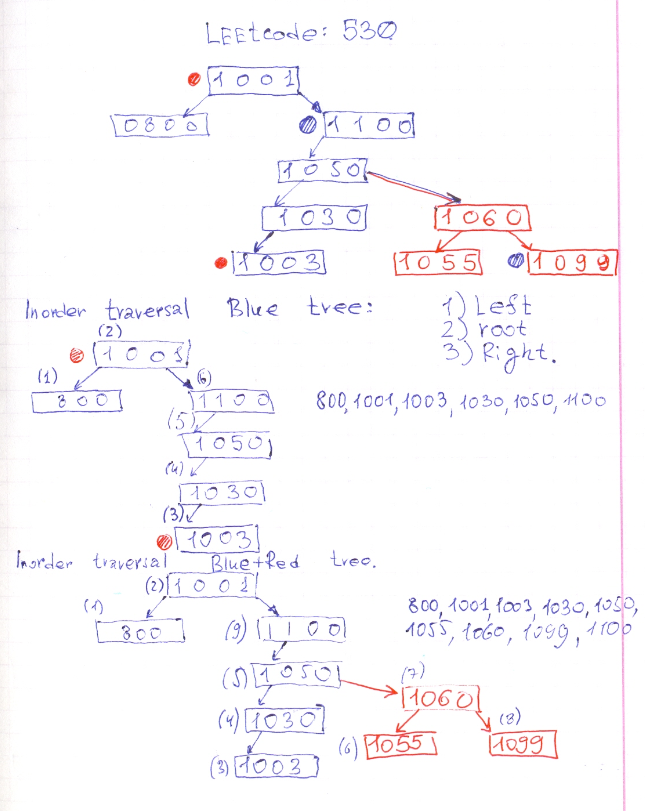 LEEtcode: 530
1001
0800
1100
1050
1030
1060
1003
1055
1099
Inorder traversal Blue tree:
1) Left
2) root
3) Right.
(2)
1001
(1)
800
(6)
1100
800, 1001, 1003, 1030, 1050, 1100
(5)
1050
(4)
1030
(3)
1003
Inorder traversal Blue+Red tree.
(2) 1001
(1)
800
(9) 1100
800, 1001, 1003, 1030, 1050,
1055, 1060, 1099, 1100
(5) 1050
(7)
1060
(4) 1030
(6) 1055
(8)
1099
(3) 1003